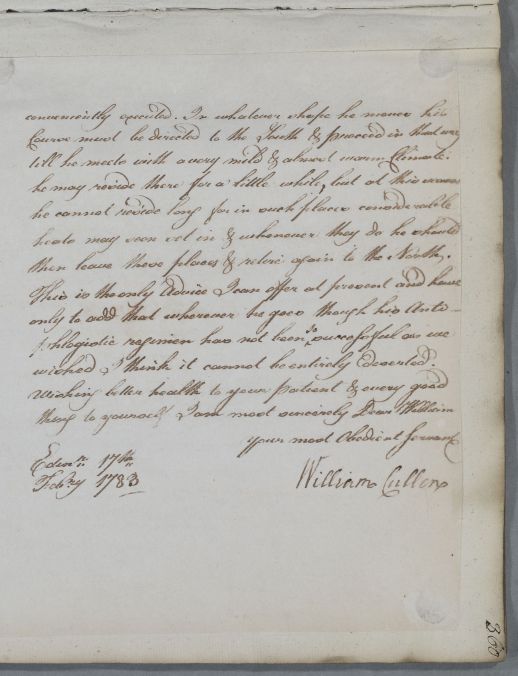 conveniently executed. In whatever shape he moves his
Course must be directed to the South & proceed in that way
till he meets with a very mild & almost warm Climate.
he may reside there for a little while, but at this season
he cannot reside long for in such places considerable
heats may soon set in & whenever they do he should
then leave these places & retire again to the North.
This is the only Advice I can offer at present and have
only to add that wherever he goes though his Anti-
phlogistic regimen has not been so successful as we
wished I think it cannot be entirely Deserted.
Wishing better health to your patient & every good
thing to yourself I am most sincerely Dear William
your most Obedient Servant
Edinr. 17th
Febry 1783
William Cullen
300